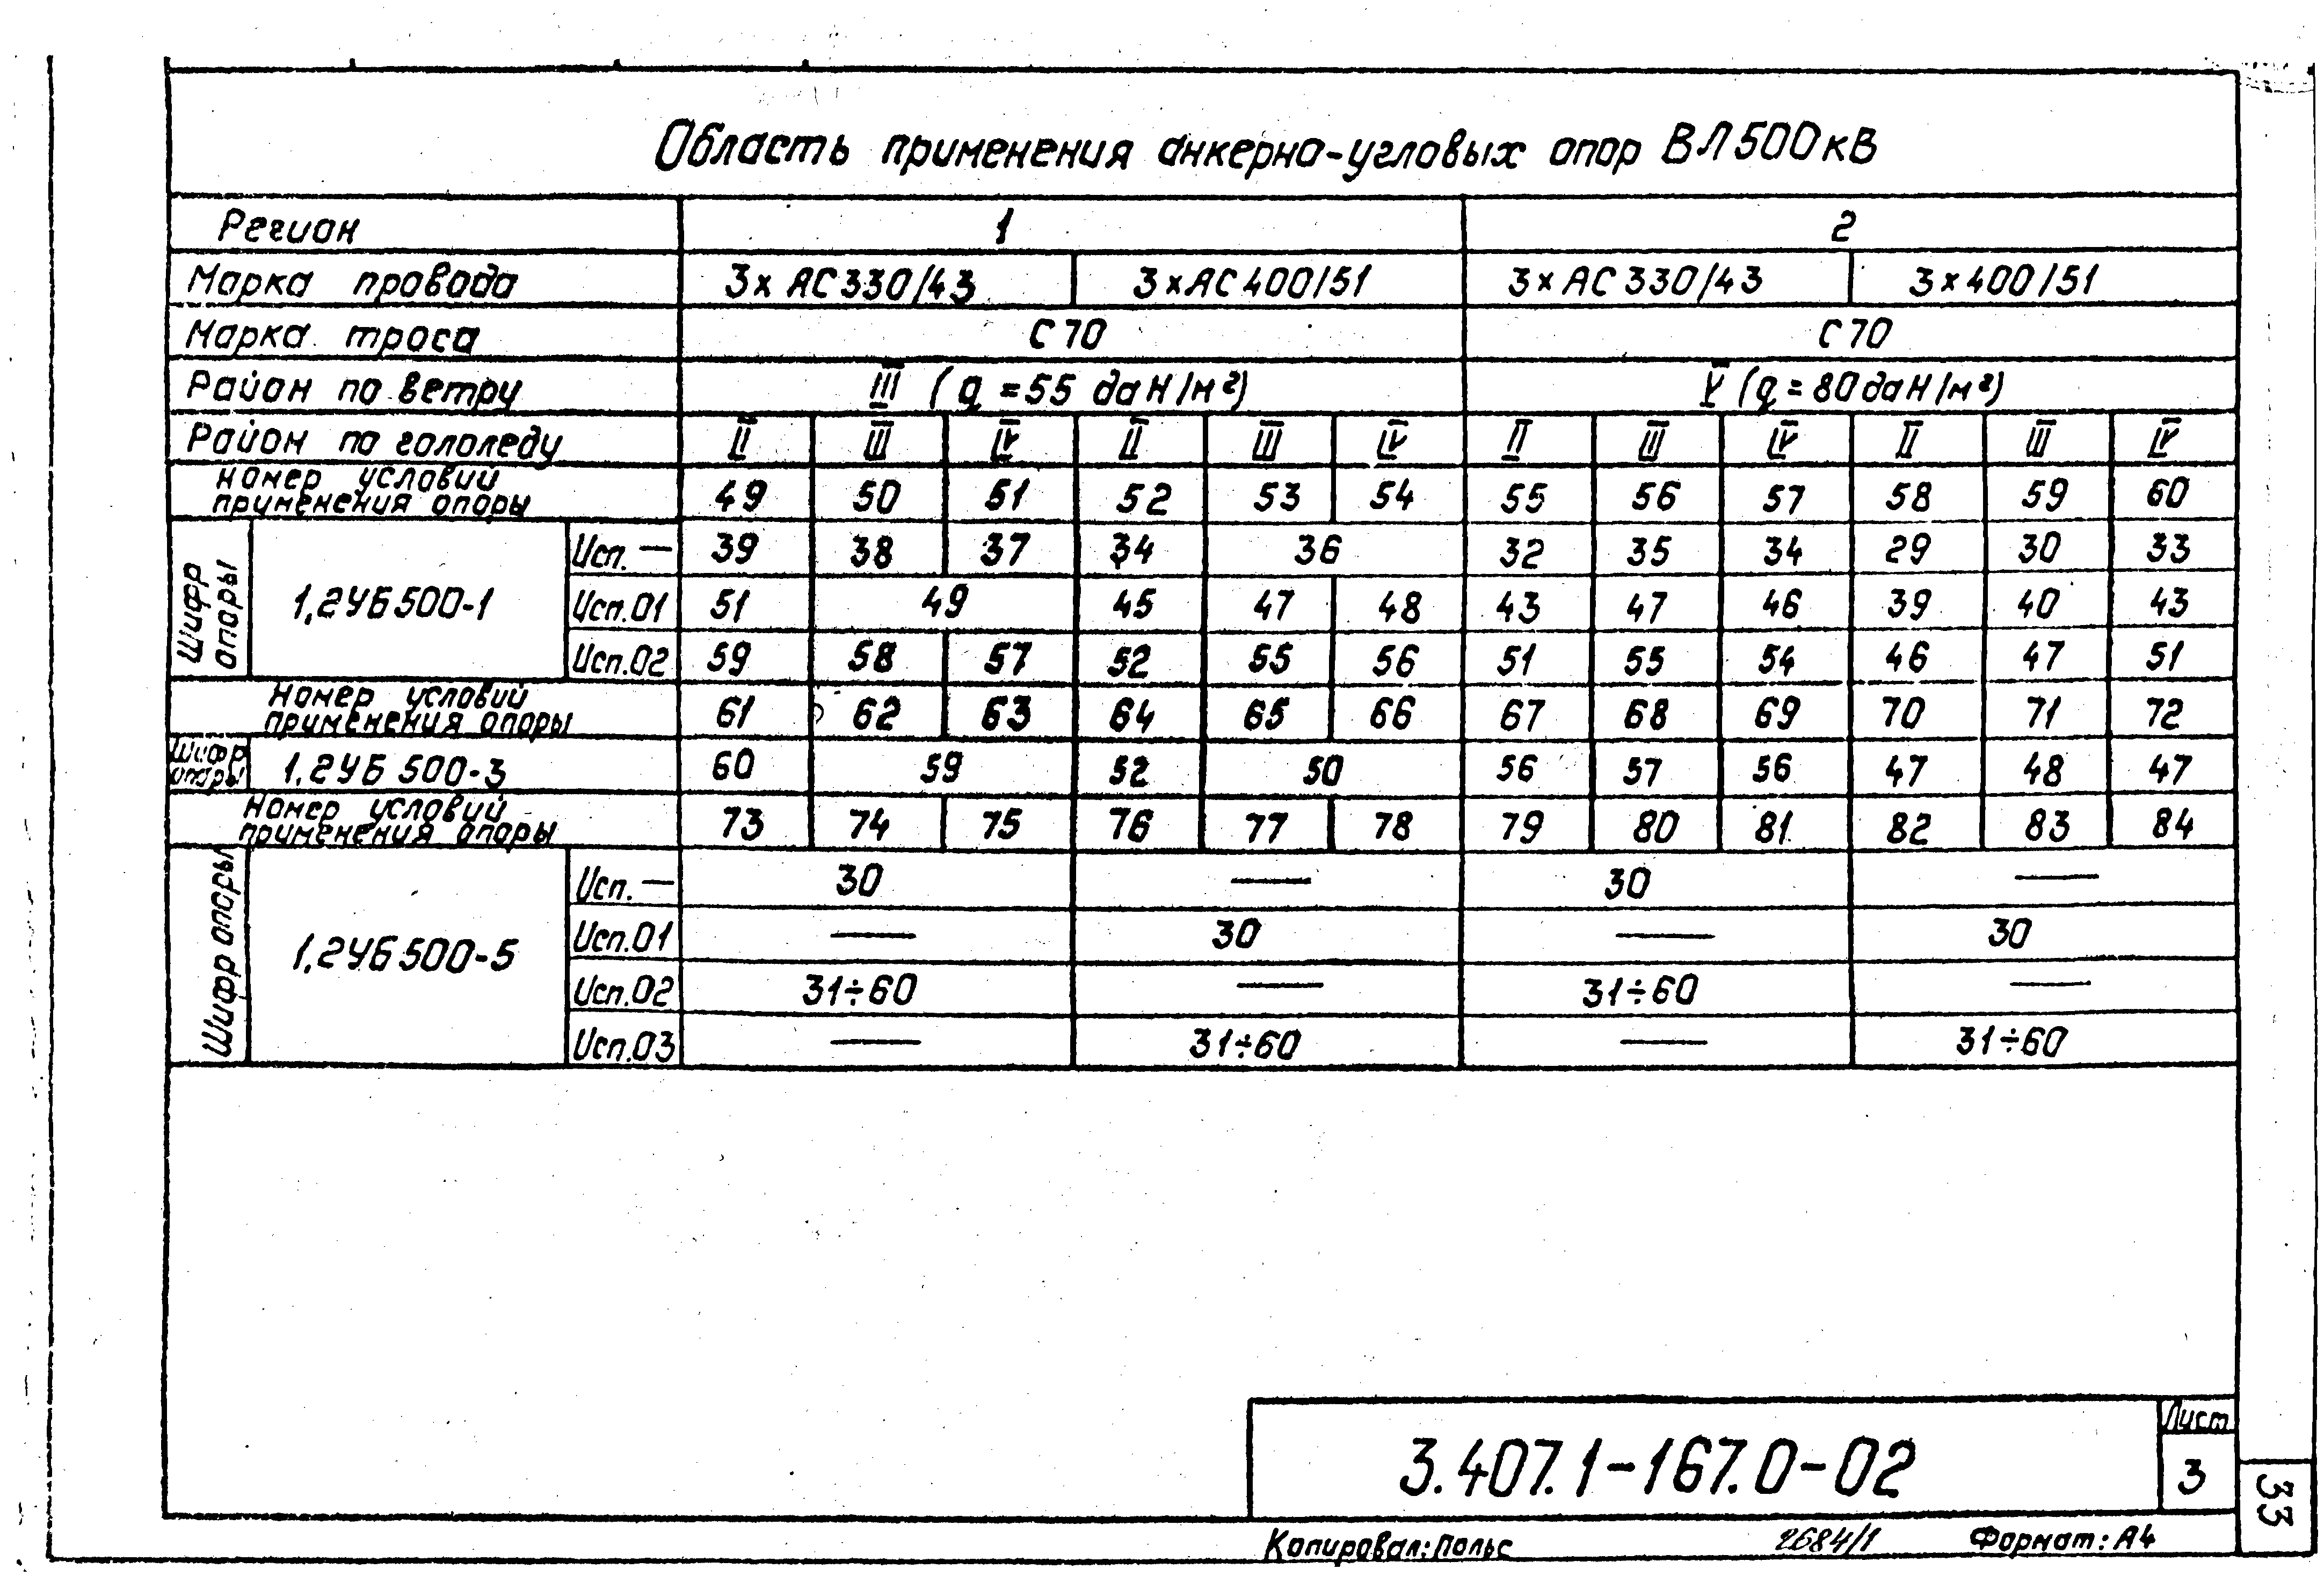 Область применения анкерно-угловых опор ВЛ 500 кВ
Регион 1 2
Марка провода 3х АС 330/43 3хАС 400/51 3хАС 330/43 3х400/51
Марка троса С 70 С 70
Район по ветру III (q = 55 даН/м²) V (q = 80 даН/м²)
Район по гололеду II III IV II III IV II III IV II III IV
Номер условий
применения опоры 49 50 51 52 53 54 55 56 57 58 59 60
Шифр опоры 1,2УБ 500-1
Исп. — 39 38 37 34 36 32 35 34 29 30 33
Исп. 01 51 49 45 47 48 43 47 46 39 40 43
Исп. 02 59 58 57 52 55 56 51 55 54 46 47 51
Номер условий
применения опоры 61 62 63 64 65 66 67 68 69 70 71 72
Шифр опоры 1,2УБ 500-3 60 59 52 50 56 57 56 47 48 47
Номер условий
применения опоры 73 74 75 76 77 78 79 80 81 82 83 84
Шифр опоры 1,2УБ 500-5
Исп. — 30 — 30 —
Исп. 01 — 30 — 30
Исп. 02 31÷60 — 31÷60 —
Исп. 03 — 31÷60 — 31÷60
3.407.1-167.0-02
Лист
3
33
Копировал: Польс 2684/1 Формат: А4